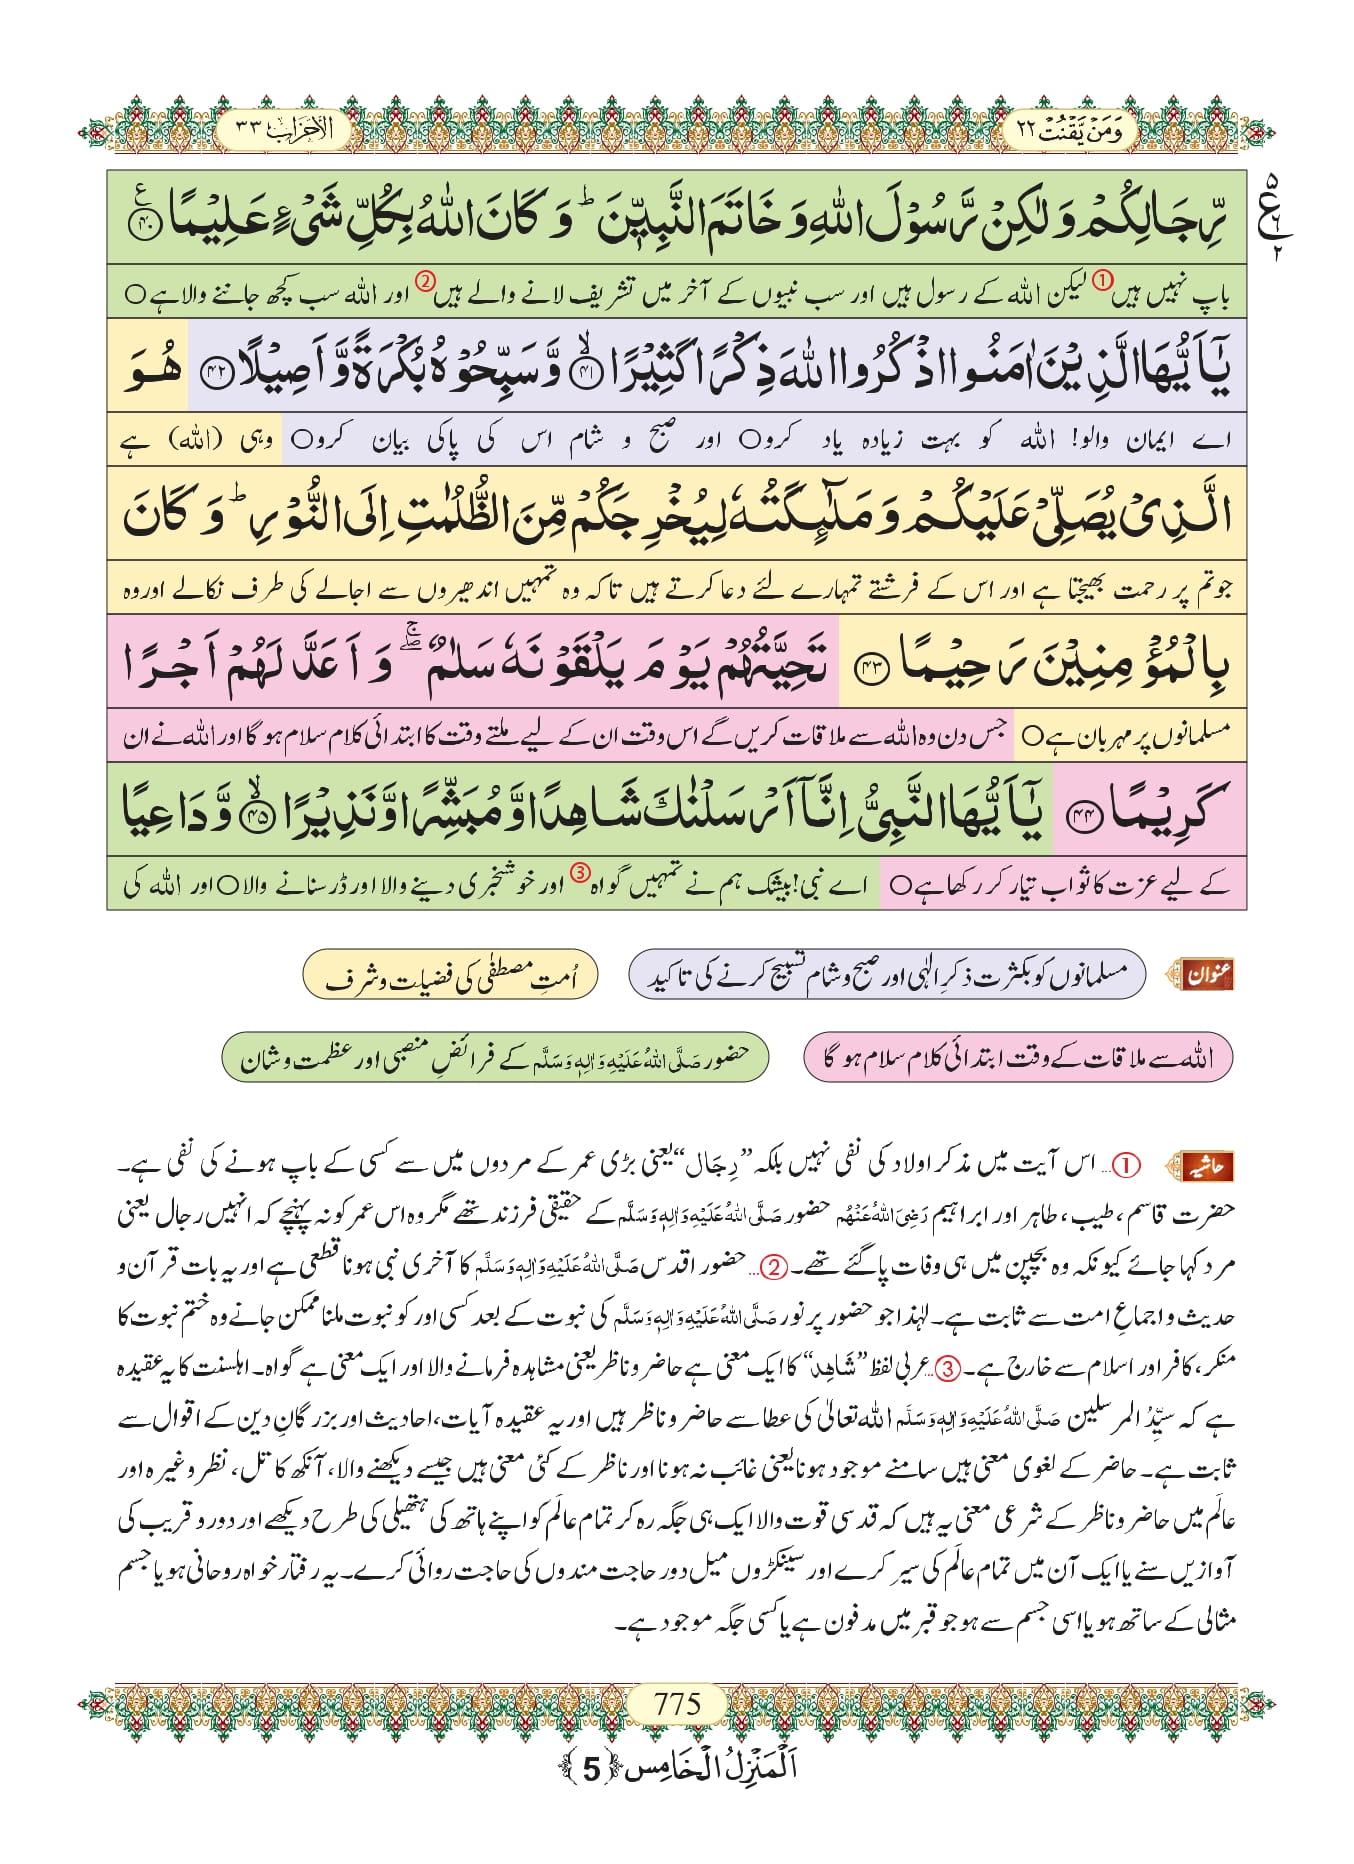 وَمَنْ یَّقْنُتْ ۲۲
الاحزاب ۳۳
رِّجَالِكُمْ وَلٰكِنْ رَّسُوْلَ اللّٰهِ وَخَاتَمَ النَّبِیّٖنَ ؕ وَكَانَ اللّٰهُ بِكُلِّ شَیْءٍ عَلِیْمًا ﴿۴۰﴾ ع
۵ ع ۶ ۲
باپ نہیں ہیں ① لیکن اللہ کے رسول ہیں اور سب نبیوں کے آخر میں تشریف لانے والے ہیں ② اور اللہ سب کچھ جاننے والا ہے ○
یٰۤاَیُّهَا الَّذِیْنَ اٰمَنُوا اذْكُرُوا اللّٰهَ ذِكْرًا كَثِیْرًا ﴿ۙ۴۱﴾ وَّسَبِّحُوْهُ بُكْرَةً وَّاَصِیْلًا ﴿۴۲﴾ هُوَ
اے ایمان والو! اللہ کو بہت زیادہ یاد کرو ○ اور صبح و شام اس کی پاکی بیان کرو ○ وہی (اللہ) ہے
الَّذِیْ یُصَلِّیْ عَلَیْكُمْ وَمَلٰٓىِٕكَتُهٗ لِیُخْرِجَكُمْ مِّنَ الظُّلُمٰتِ اِلَى النُّوْرِ ؕ وَكَانَ
جو تم پر رحمت بھیجتا ہے اور اس کے فرشتے تمہارے لئے دعا کرتے ہیں تاکہ وہ تمہیں اندھیروں سے اجالے کی طرف نکالے اور وہ
بِالْمُؤْمِنِیْنَ رَحِیْمًا ﴿۴۳﴾ تَحِیَّتُهُمْ یَوْمَ یَلْقَوْنَهٗ سَلٰمٌ ۖۚ وَاَعَدَّ لَهُمْ اَجْرًا
مسلمانوں پر مہربان ہے ○ جس دن وہ اللہ سے ملاقات کریں گے اس وقت ان کے لیے ملتے وقت کا ابتدائی کلام سلام ہو گا اور اللہ نے ان
كَرِیْمًا ﴿۴۴﴾ یٰۤاَیُّهَا النَّبِیُّ اِنَّاۤ اَرْسَلْنٰكَ شَاهِدًا وَّمُبَشِّرًا وَّنَذِیْرًا ﴿ۙ۴۵﴾ وَّدَاعِیًا
کے لیے عزت کا ثواب تیار کر رکھا ہے ○ اے نبی! بیشک ہم نے تمہیں گواہ ③ اور خوشخبری دینے والا اور ڈر سنانے والا ○ اور اللہ کی
عنوان مسلمانوں کو بکثرت ذکرِ الٰہی اور صبح و شام تسبیح کرنے کی تاکید اُمتِ مصطفٰی کی فضیلت و شرف
اللہ سے ملاقات کے وقت ابتدائی کلام سلام ہو گا حضور صَلَّی اللہُ عَلَیْہِ وَاٰلِہٖ وَسَلَّم کے فرائضِ منصبی اور عظمت و شان
حاشیہ ①... اس آیت میں مذکر اولاد کی نفی نہیں بلکہ ”رِجَال“ یعنی بڑی عمر کے مردوں میں سے کسی کے باپ ہونے کی نفی ہے۔
حضرت قاسم، طیب، طاہر اور ابراہیم رَضِیَ اللہُ عَنْہُم حضور صَلَّی اللہُ عَلَیْہِ وَاٰلِہٖ وَسَلَّم کے حقیقی فرزند تھے مگر وہ اس عمر کو نہ پہنچے کہ انہیں رجال یعنی
مرد کہا جائے کیونکہ وہ بچپن میں ہی وفات پا گئے تھے۔ ②... حضور اقدس صَلَّی اللہُ عَلَیْہِ وَاٰلِہٖ وَسَلَّم کا آخری نبی ہونا قطعی ہے اور یہ بات قرآن و
حدیث و اجماعِ امت سے ثابت ہے۔ لہٰذا جو حضور پر نور صَلَّی اللہُ عَلَیْہِ وَاٰلِہٖ وَسَلَّم کی نبوت کے بعد کسی اور کو نبوت ملنا ممکن جانے وہ ختم نبوت کا
منکر، کافر اور اسلام سے خارج ہے۔ ③... عربی لفظ ”شَاہِد“ کا ایک معنی ہے حاضر و ناظر یعنی مشاہدہ فرمانے والا اور ایک معنی ہے گواہ۔ اہلسنت کا یہ عقیدہ
ہے کہ سیِّدُ المرسلین صَلَّی اللہُ عَلَیْہِ وَاٰلِہٖ وَسَلَّم اللہ تعالیٰ کی عطا سے حاضر و ناظر ہیں اور یہ عقیدہ آیات، احادیث اور بزرگانِ دین کے اقوال سے
ثابت ہے۔ حاضر کے لغوی معنی ہیں سامنے موجود ہونا یعنی غائب نہ ہونا اور ناظر کے کئی معنی ہیں جیسے دیکھنے والا، آنکھ کا تل، نظر وغیرہ اور
عالَم میں حاضر و ناظر کے شرعی معنی یہ ہیں کہ قدسی قوت والا ایک ہی جگہ رہ کر تمام عالَم کو اپنے ہاتھ کی ہتھیلی کی طرح دیکھے اور دور و قریب کی
آوازیں سنے یا ایک آن میں تمام عالَم کی سیر کرے اور سینکڑوں میل دور حاجت مندوں کی حاجت روائی کرے۔ یہ رفتار خواہ روحانی ہو یا جسم
مثالی کے ساتھ ہو یا اسی جسم سے ہو جو قبر میں مدفون ہے یا کسی جگہ موجود ہے۔
775
اَلْمَنْزِلُ الْخَامِس ﴿5﴾